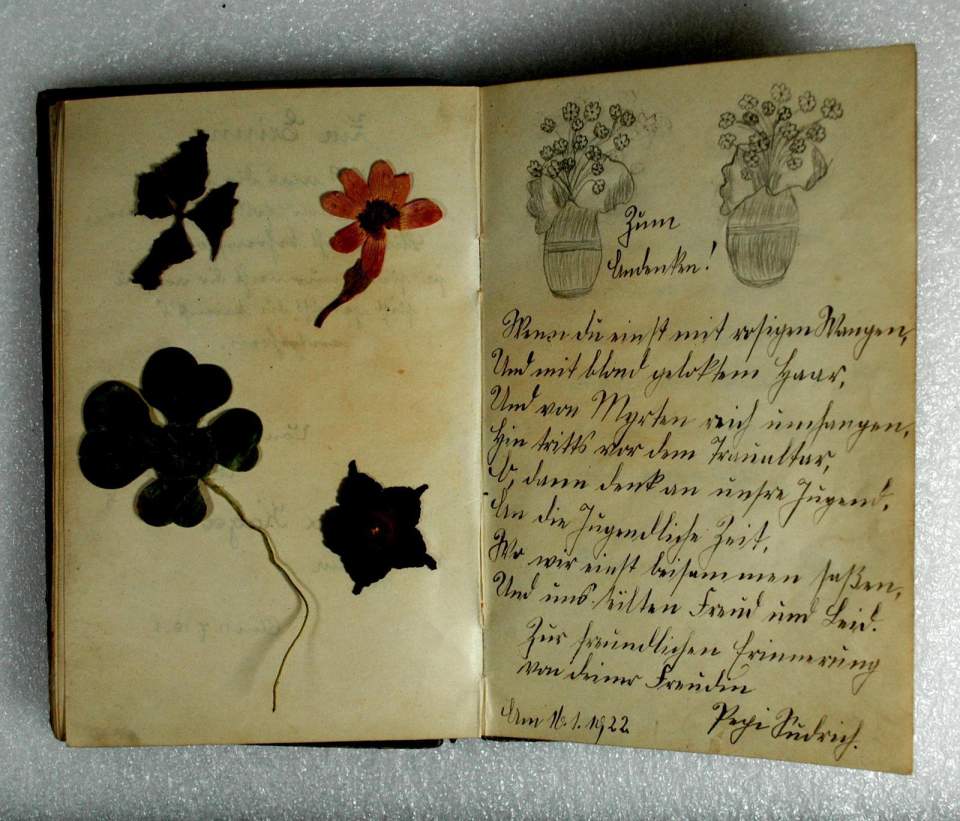 Zum
Andenken!
Wenn du einst mit rosigen Wangen,
Und mit blond geloktem Haar,
Und von Myrten reich umhangen,
Hin tritts vor dem Traualtar,
O, dann denk an unsre Jugend,
An die Jugendliche Zeit,
Wo wir einst beisammen saßen,
Und uns teilten Freud und Leid.
Zur freundlichen Erinnerung
von deiner Freundin
Am 16.1.1922 Pepi Südrich.